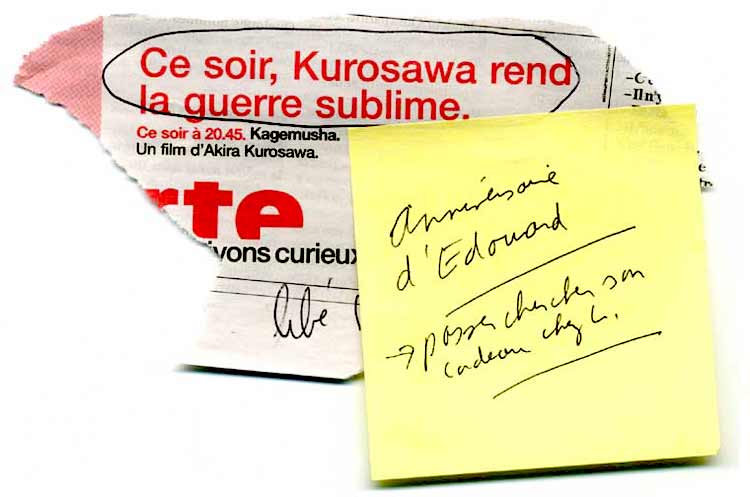 Ce soir, Kurosawa rend
la guerre sublime.
Ce soir à 20.45. Kagemusha.
Un film d'Akira Kurosawa.
rte
ivons curieux
libé
-Il n'y
Anniversaire
d'Edouard
→ passer chercher son
cadeau chez L.